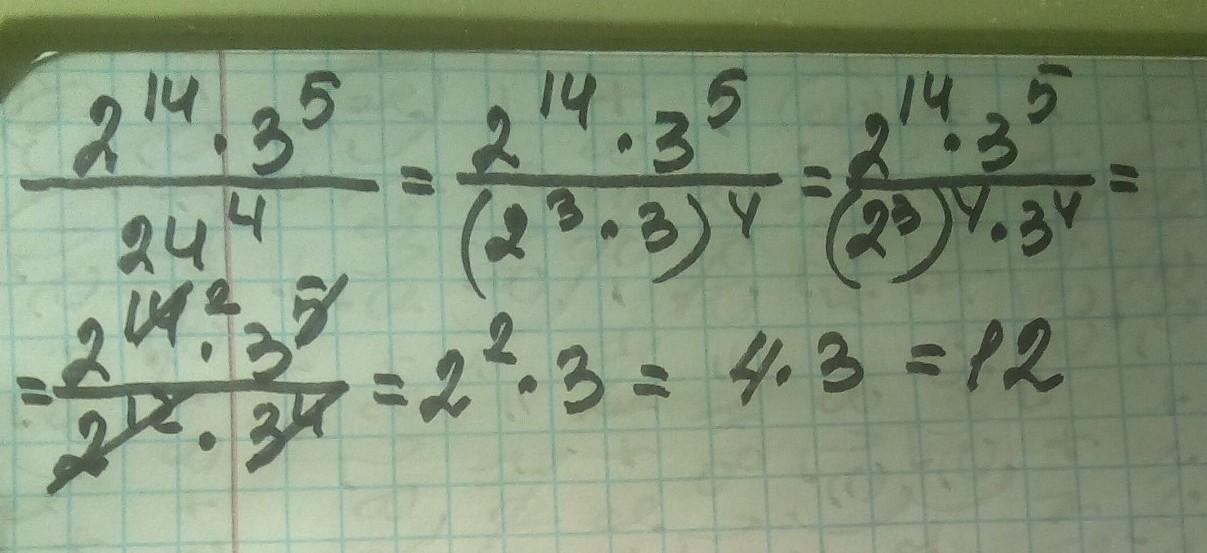 2^14 · 3^5 / 24^4 = 2^14 · 3^5 / (2^3 · 3)^4 = 2^14 · 3^5 / (2^3)^4 · 3^4 =
= 2^14 2 · 3^5 / 2^12 · 3^4 = 2^2 · 3 = 4 · 3 = 12